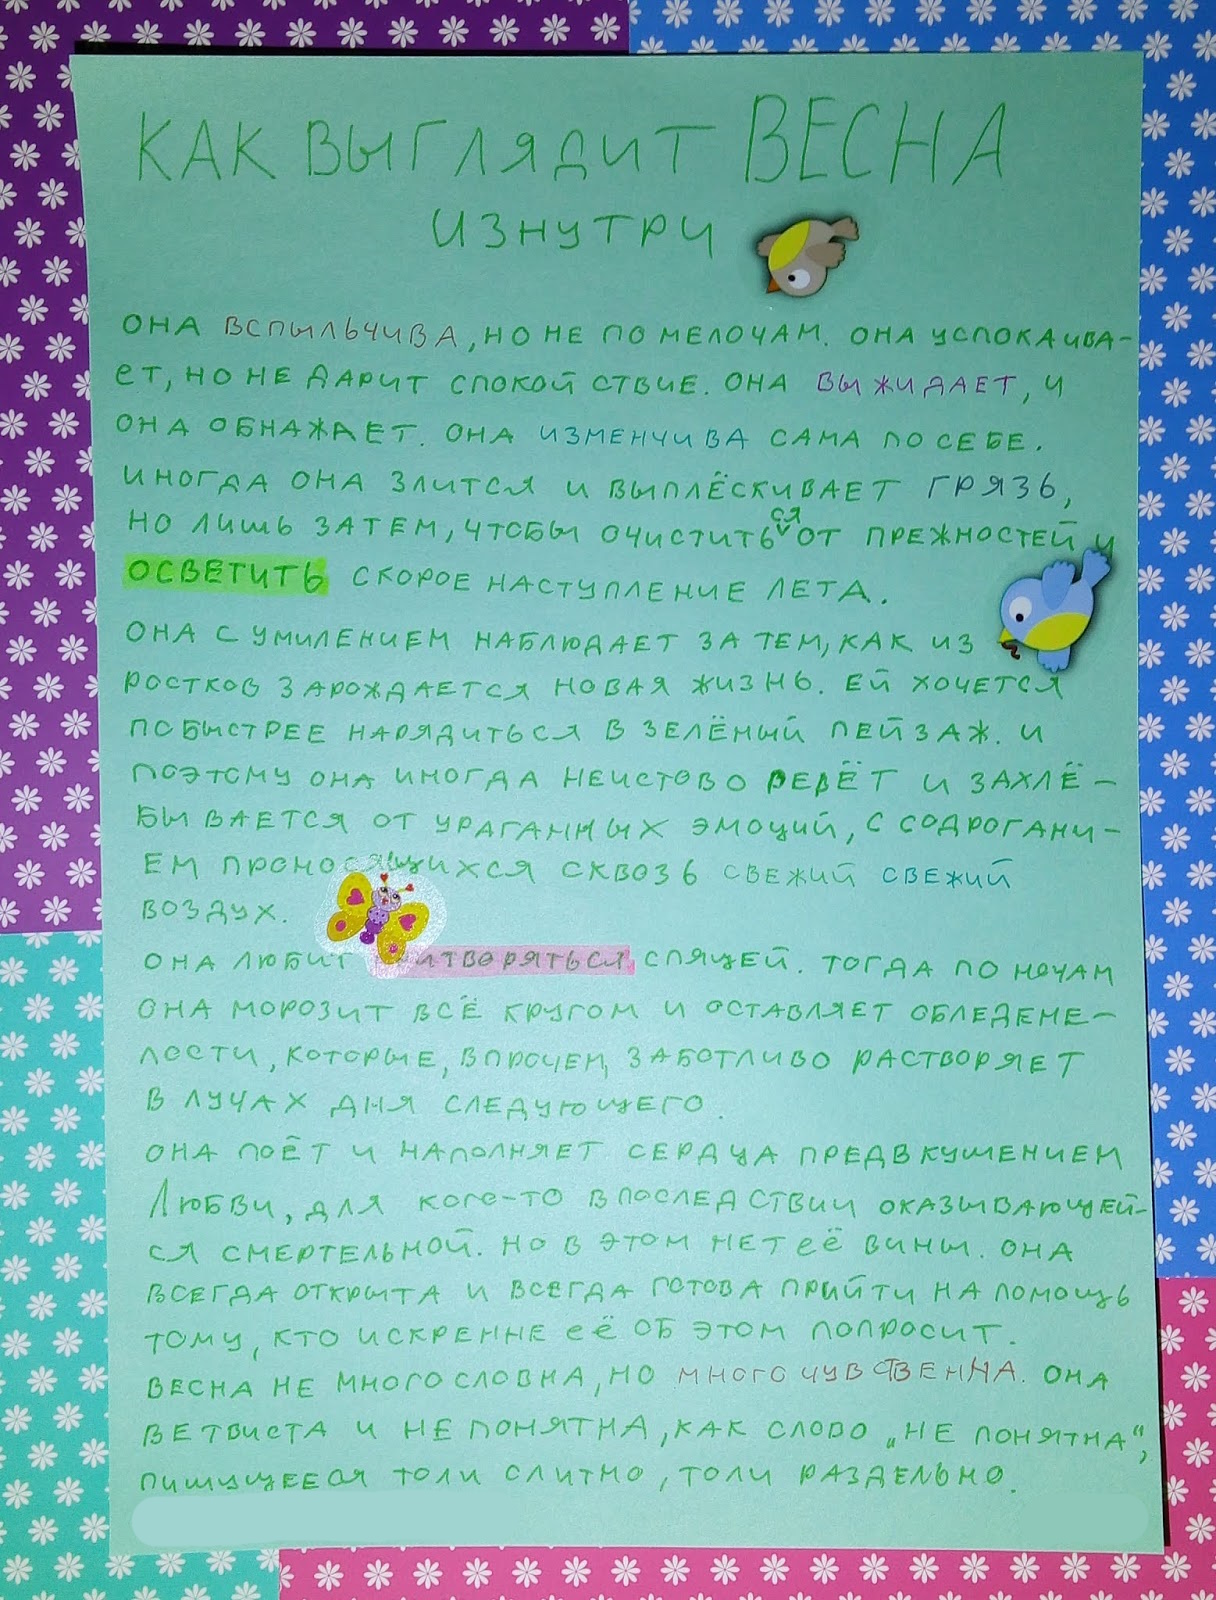 КАК ВЫГЛЯДИТ ВЕСНА
ИЗНУТРИ
ОНА ВСПЫЛЬЧИВА, НО НЕ ПО МЕЛОЧАМ. ОНА УСПОКАИВА-
ЕТ, НО НЕ ДАРИТ СПОКОЙСТВИЕ. ОНА ВЫЖИДАЕТ, И
ОНА ОБНАЖАЕТ. ОНА ИЗМЕНЧИВА САМА ПО СЕБЕ.
ИНОГДА ОНА ЗЛИТСЯ И ВЫПЛЁСКИВАЕТ ГРЯЗЬ,
НО ЛИШЬ ЗАТЕМ, ЧТОБЫ ОЧИСТИТЬСЯ ОТ ПРЕЖНОСТЕЙ И
ОСВЕТИТЬ СКОРОЕ НАСТУПЛЕНИЕ ЛЕТА.
ОНА С УМИЛЕНИЕМ НАБЛЮДАЕТ ЗА ТЕМ, КАК ИЗ
РОСТКОВ ЗАРОЖДАЕТСЯ НОВАЯ ЖИЗНЬ. ЕЙ ХОЧЕТСЯ
ПОБЫСТРЕЕ НАРЯДИТЬСЯ В ЗЕЛЁНЫЙ ПЕЙЗАЖ. И
ПОЭТОМУ ОНА ИНОГДА НЕИСТОВО РЕВЁТ И ЗАХЛЁ-
БЫВАЕТСЯ ОТ УРАГАННЫХ ЭМОЦИЙ, С СОДРОГАНИ-
ЕМ ПРОНОСЯЩИХСЯ СКВОЗЬ СВЕЖИЙ СВЕЖИЙ
ВОЗДУХ.
ОНА ЛЮБИТ ПРИТВОРЯТЬСЯ СПЯЩЕЙ. ТОГДА ПО НОЧАМ
ОНА МОРОЗИТ ВСЁ КРУГОМ И ОСТАВЛЯЕТ ОБЛЕДЕНЕ-
ЛОСТИ, КОТОРЫЕ, ВПРОЧЕМ, ЗАБОТЛИВО РАСТВОРЯЕТ
В ЛУЧАХ ДНЯ СЛЕДУЮЩЕГО.
ОНА ПОЁТ И НАПОЛНЯЕТ СЕРДЦА ПРЕДВКУШЕНИЕМ
ЛЮБВИ, ДЛЯ КОГО-ТО ВПОСЛЕДСТВИИ ОКАЗЫВАЮЩЕЙ-
СЯ СМЕРТЕЛЬНОЙ. НО В ЭТОМ НЕТ ЕЁ ВИНЫ. ОНА
ВСЕГДА ОТКРЫТА И ВСЕГДА ГОТОВА ПРИЙТИ НА ПОМОЩЬ
ТОМУ, КТО ИСКРЕННЕ ЕЁ ОБ ЭТОМ ПОПРОСИТ.
ВЕСНА НЕ МНОГОСЛОВНА, НО МНОГОЧУВСТВЕННА. ОНА
ВЕТВИСТА И НЕ ПОНЯТНА, КАК СЛОВО „НЕ ПОНЯТНА“,
ПИШУЩЕЕСЯ ТОЛИ СЛИТНО, ТОЛИ РАЗДЕЛЬНО.